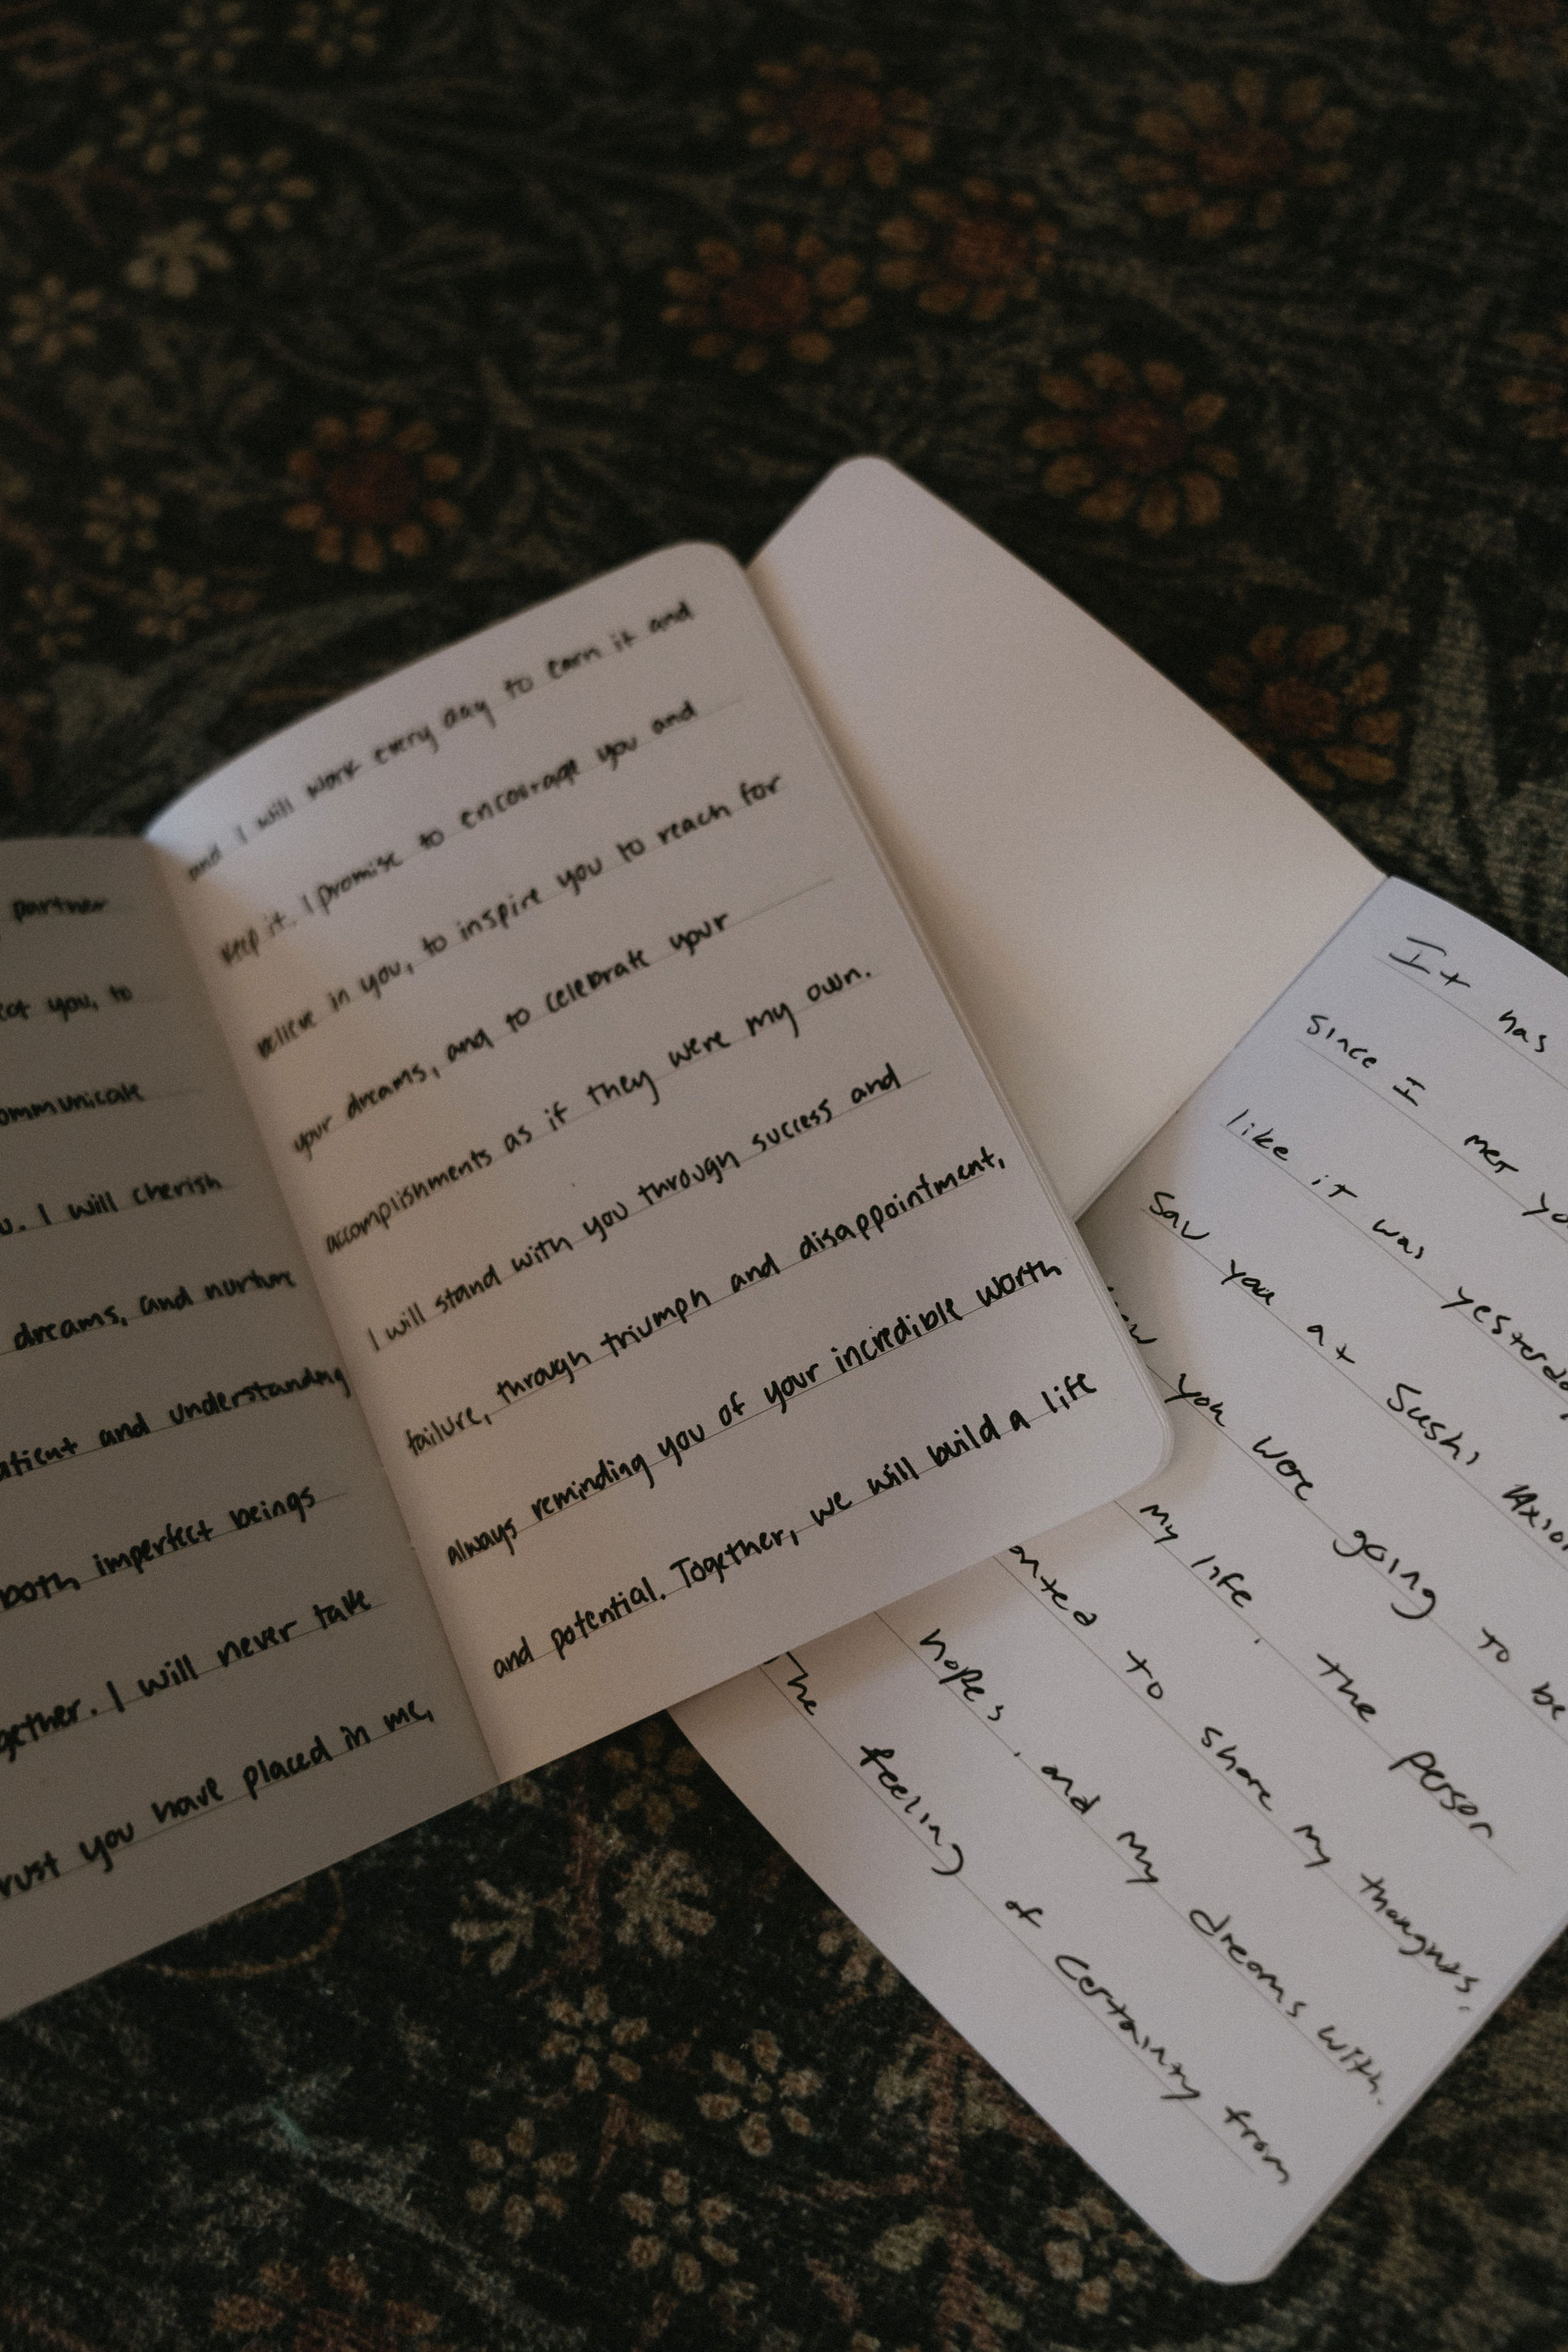 partner
you, to
. I will cherish
dreams, and nurture
and understanding
both imperfect beings
. I will never take
you have placed in me,
and I will work every day to earn it and
keep it. I promise to encourage you and
believe in you, to inspire you to reach for
your dreams, and to celebrate your
accomplishments as if they were my own.
I will stand with you through success and
failure, through triumph and disappointment,
always reminding you of your incredible worth
and potential. Together, we will build a life
It has
since I met
like it was
saw you at Sushi
you were going to be
my life, the person
to share my thoughts,
hopes, and my dreams with.
The feeling of certainty from